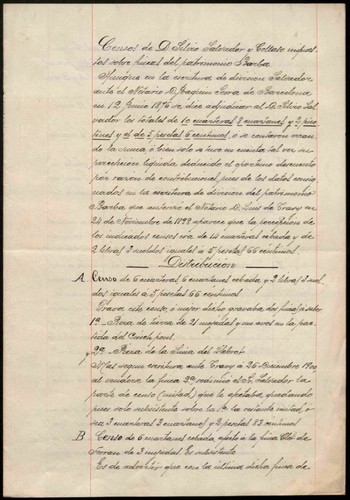 Censos de D. Silvio Salvador y Collaso impues-
tos sobre fincas del patrimonio Barba
en la escritura de division Salvador
ante el Notario D. Joaquin de Barcelona
en 12 Junio 1876 se dice adjudicar al D. Silvio Sal-
vador los totales de 10 cuarteras 8 cuartanes y 2 picu-
tines y el de 5 pesetas 6 centimos, o se contaron
de la o bien solo se tuvo en cuenta tal vez su
percepcion liquida deducido el descuento
por razon de contribucion, pues de los datos consig-
nados en la escritura de division del patrimonio
Barba que autorizó el Notario D. Luis de Travy en
24 de Noviembre de 1899 aparece que la percepcion de
los indicados censos era de 14 cuarteras cebada y de
2 libras 2 sueldos iguales a 5 pesetas 66 centimos.
Distribucion
A. Censo de 6 cuarteras 6 cuartanes cebada y 2 libras 2 suel-
dos iguales a 5 pesetas 66 centimos
este censo, o mejor dicho gravaba dos fincas a saber
1ª Pieza de tierra de 21 mojadas y una en la par-
tida del
y 2ª Pieza de la Sinia del
Mas segun escritura ante Travy a 26 Diciembre 1900
al venderse la finca 2ª redimio al Sr. Salvador la
parte de censo (mitad) que le afectaba, quedando
pues solo subsistente sobre la 1ª la restante mitad, o
sea 3 cuarteras 3 cuartanes y 2 pesetas 83 centimos
B Censo de 6 cuartanes cebada afecto a la finca Clos de
Foran de 3 mojadas. Es subsistente
Es de advertir que con la ultima dicha finca de